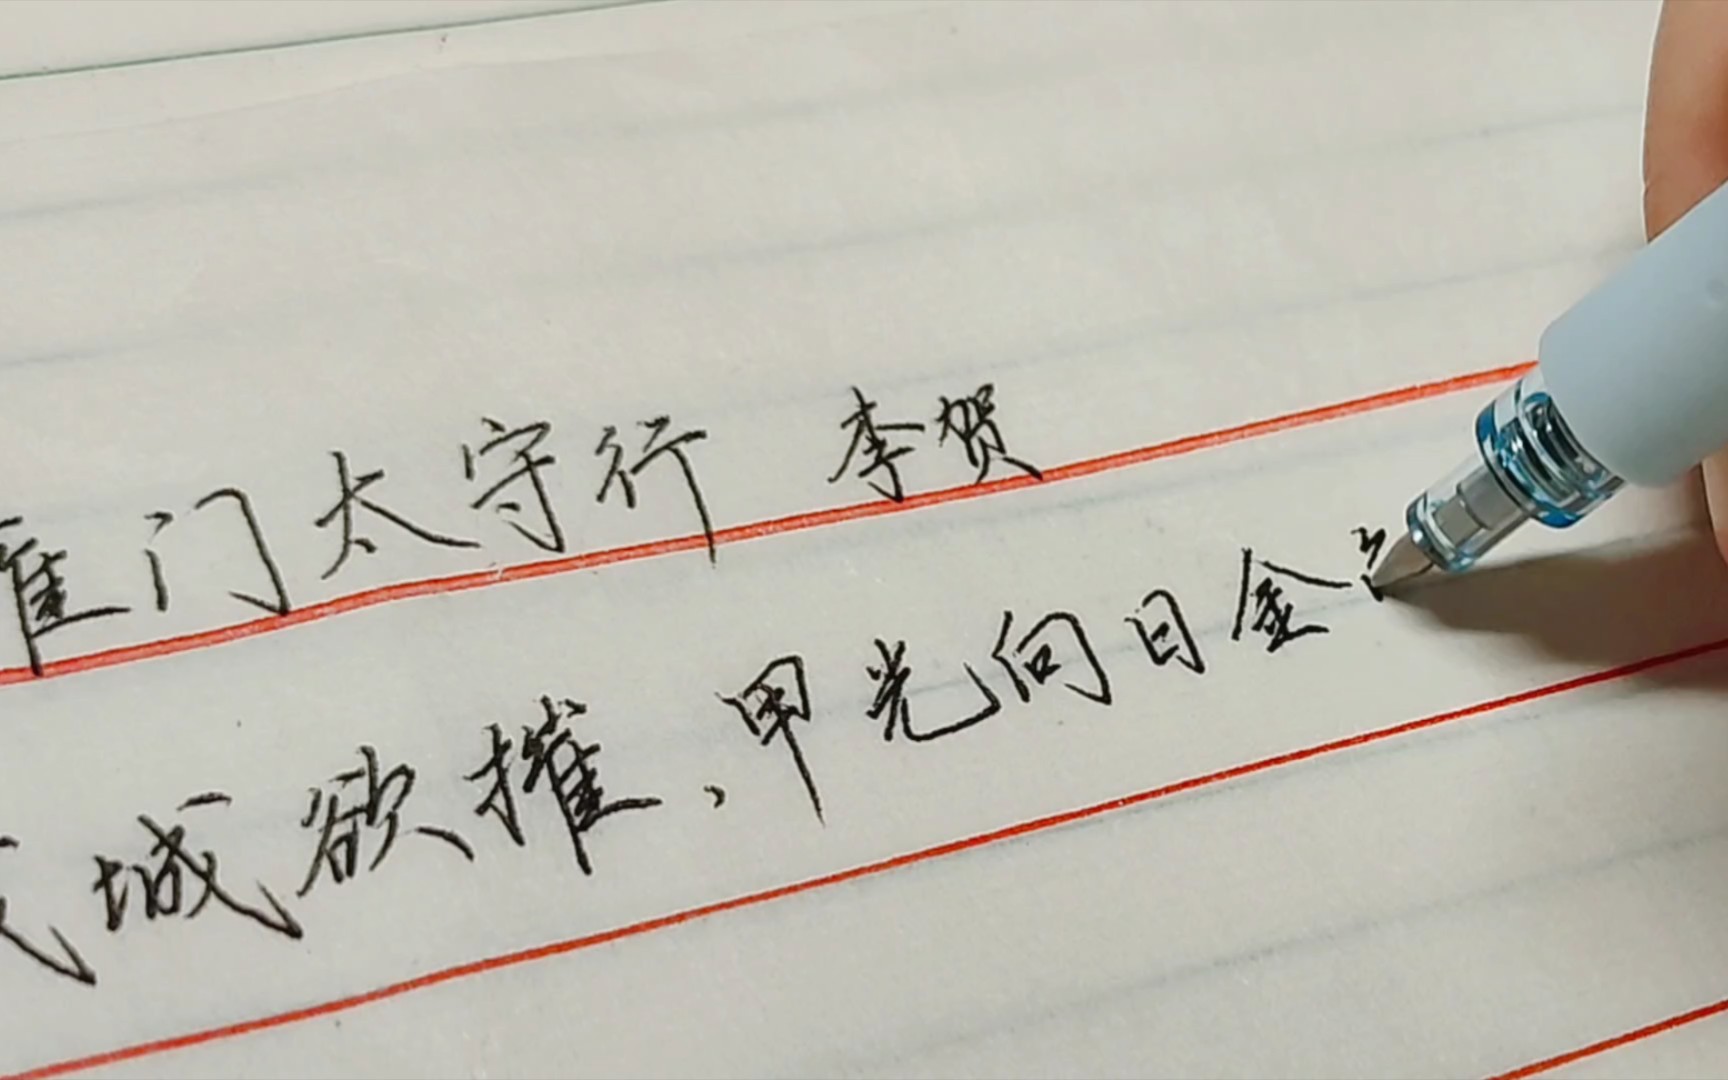 门太守行 李贺
城欲摧，甲光向日金